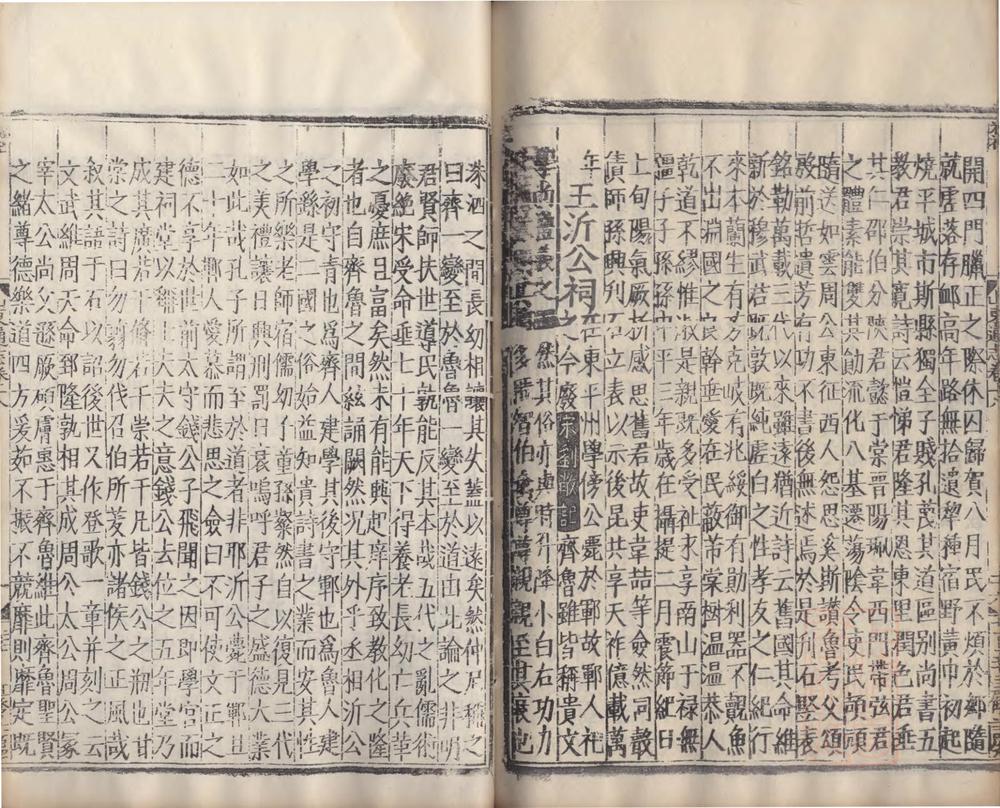 開四門臘正之際休囚歸賀八月民不煩於鄉隨
就虗落存邺高年路無拾遺犂種宿野黄巾初起
燒平城市斯縣獨全子賤孔蔑其道區别尚書五
教君崇其寛詩云愷悌君隆其恩東里潤色君垂
其仁邵伯分陜君懿于棠晉陽珮韋西門帶弦君
之體素能雙其勛流化八基遷蕩陰令吏民頡頏
隨送如雲周公東征西人怨思奚斯讃魯考父頌
殷前哲遺芳有功不書後無述焉於是刋石竪表
銘勒萬載三代以來雖遠猶近詩云舊國其命維
新於穆武君旣敦旣純虐白之性孝友之仁紀行
來本蘭生有芬克岐有兆綏御有勛利器不覿魚
不出淵國之良幹垂愛在民蔽芾棠樹温温恭人
乾道不繆惟淑是親旣多受祉求享南山于禄無
疆子子孫孫中平三年歲在攝提二月震節紀日
上旬陽氣厥析感思舊君故吏喆等僉然同聲
債師孫興刋石立表以示後昆共享天祚億載萬
年
王沂公祠在東平州學傍公薨於鄆故鄆人祀
之今廢宋劉敞記齊魯雖皆稱貴文
學尚禮義之國然其俗亦與時升降小白右功力
多霸智伯禽尊尊親親至其衰也
洙泗之間長幼相讓其失蓋以遠矣然仲尼稱之
曰齊一變至於魯魯一變至於道由此論之非明
君賢師扶世導民孰能反其本哉五代之亂儒術
廢絶宋受命垂七十年天下得養老長幼亡兵革
之憂庶且富矣然未有能興起庠序致教化之隆
者也自齊魯之間絃誦闕然況其外乎丞相沂公
之初守青也爲齊人建學其後守鄆也爲魯人建
學繇是二國之俗始益知貴詩書之業而安其性
之所樂老師宿儒幼子童孫粲然自以復見三代
之美禮讓日興刑罰日衰嗚呼君子之盛德大業
如此哉孔子所謂至於道者非耶沂公薨于鄆且
二十年鄆人愛慕而悲思之僉曰不可使文正之
德不享於世前太守錢公子飛聞之因即學宫而
建祠堂以稱士大夫之意錢公去位之五年堂乃
成其廣若干脩若干崇若干凡皆錢公之剏也甘
棠之詩曰勿翦勿伐召伯所茇亦諸侯之正風哉
叙其語于石以詔後世又作登歌一章并刻之云
文武維周天命郅隆孰相其成周公太公周公冢
宰太公尚父遜厥碩膚惠于齊魯維此齊魯聖賢
之緒尊德樂道四方爰茹不振不競靡則靡定旣